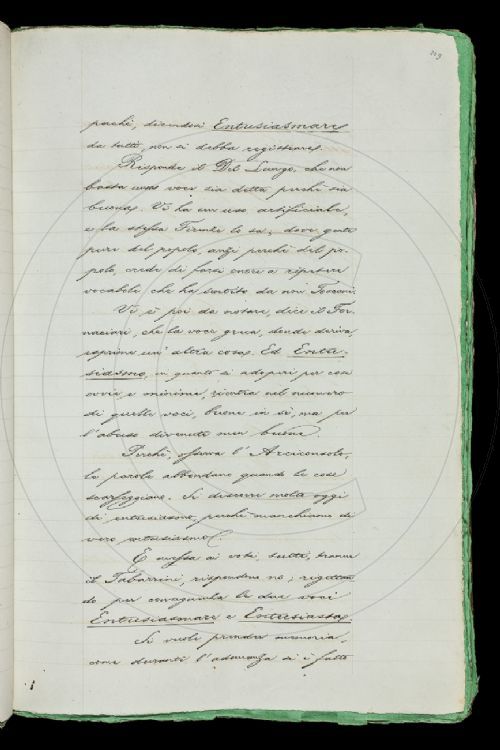 209
perchè, dicendosi Entusiasmare
da tutti, non si debba registrare.
Risponde il Del Lungo, che non
basta una voce sia detta perchè sia
buona. Vi ha un uso artificiale,
e la stessa Firenze lo sa; dove gente
pure del popolo, anzi perchè del po-
polo, crede di farsi onore a ripetere
vocaboli che ha sentito da non Toscani.
Vi è poi da notare, dice il For-
naciari, che la voce greca, donde deriva,
esprime un'altra cosa. Ed Entu-
siasmo, in quanto si adoperi per cosa
ovvia e minima, rientra nel numero
di quelle voci, buone in sè, ma per
l'abuso divenute men buone.
Perchè, osserva l'Arciconsolo,
le parole abbondano quando le cose
scarseggiano. Si discorre molto oggi
di entusiasmo, perchè manchiamo di
vero entusiasmo.
E messa ai voti, tutti, tranne
il Tabarrini, rispondono no; rigettan
do per conseguenza le due voci
Entusiasmare e Entusiasta.
Si vuole prender memoria,
come durante l'adunanza si è fatto